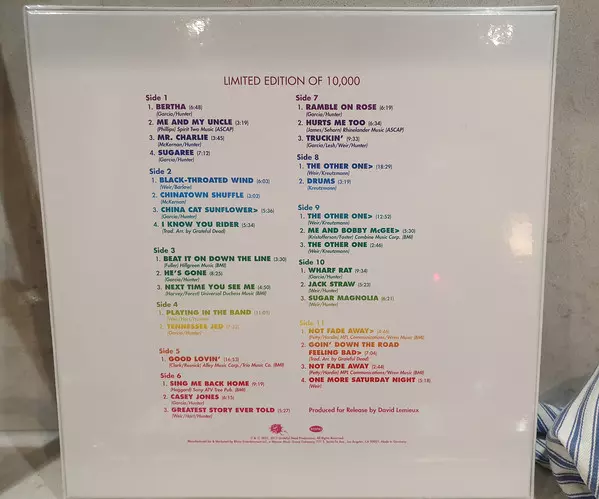 LIMITED EDITION OF 10,000
Side 1
1. BERTHA (6:48)
(Garcia/Hunter)
2. ME AND MY UNCLE (3:19)
(Phillips) Spirit Two Music (ASCAP)
3. MR. CHARLIE (3:45)
(McKernan/Hunter)
4. SUGAREE (7:12)
(Garcia/Hunter)
Side 2
1. BLACK-THROATED WIND (6:03)
(Weir/Barlow)
2. CHINATOWN SHUFFLE (3:02)
(McKernan)
3. CHINA CAT SUNFLOWER> (5:36)
(Garcia/Hunter)
4. I KNOW YOU RIDER (5:34)
(Trad. Arr. by Grateful Dead)
Side 3
1. BEAT IT ON DOWN THE LINE (3:30)
(Fuller) Hillgreen Music (BMI)
2. HE'S GONE (8:25)
(Garcia/Hunter)
3. NEXT TIME YOU SEE ME (4:50)
(Harvey/Forest) Universal Duchess Music (BMI)
Side 4
1. PLAYING IN THE BAND
(Weir/Hart/Hunter)
2. TENNESSEE JED
(Garcia/Hunter)
Side 5
1. GOOD LOVIN'
(Clark/Resnick) Alley Music Corp./Trio Music Co. (BMI)
Side 6
1. SING ME BACK HOME (9:19)
(Haggard) Sony ATV-Tree Pub. (BMI)
2. CASEY JONES (6:15)
(Garcia/Hunter)
3. GREATEST STORY EVER TOLD (5:27)
(Weir/Hart/Hunter)
Side 7
1. RAMBLE ON ROSE (6:19)
(Garcia/Hunter)
2. HURTS ME TOO (6:34)
(James/Sehorn) Rhinelander Music (ASCAP)
3. TRUCKIN' (9:33)
(Garcia/Lesh/Weir/Hunter)
Side 8
1. THE OTHER ONE> (18:29)
(Weir/Kreutzmann)
2. DRUMS (3:19)
(Kreutzmann)
Side 9
1. THE OTHER ONE> (12:52)
(Weir/Kreutzmann)
2. ME AND BOBBY McGEE> (5:41)
(Kristofferson/Foster) Combine Music Corp. (BMI)
3. THE OTHER ONE (2:46)
(Weir/Kreutzmann)
Side 10
1. WHARF RAT (9:34)
(Garcia/Hunter)
2. JACK STRAW (5:23)
(Weir/Hunter)
3. SUGAR MAGNOLIA (6:31)
(Weir/Hunter)
Side 11
1. NOT FADE AWAY>
(Petty/Hardin) MPL Communications/Wren Music (BMI)
2. GOIN' DOWN THE ROAD
FEELING BAD> (7:04)
(Trad. Arr. by Grateful Dead)
3. NOT FADE AWAY (2:44)
(Petty/Hardin) MPL Communications/Wren Music (BMI)
4. ONE MORE SATURDAY NIGHT (5:18)
(Weir)
Produced for Release by David Lemieux